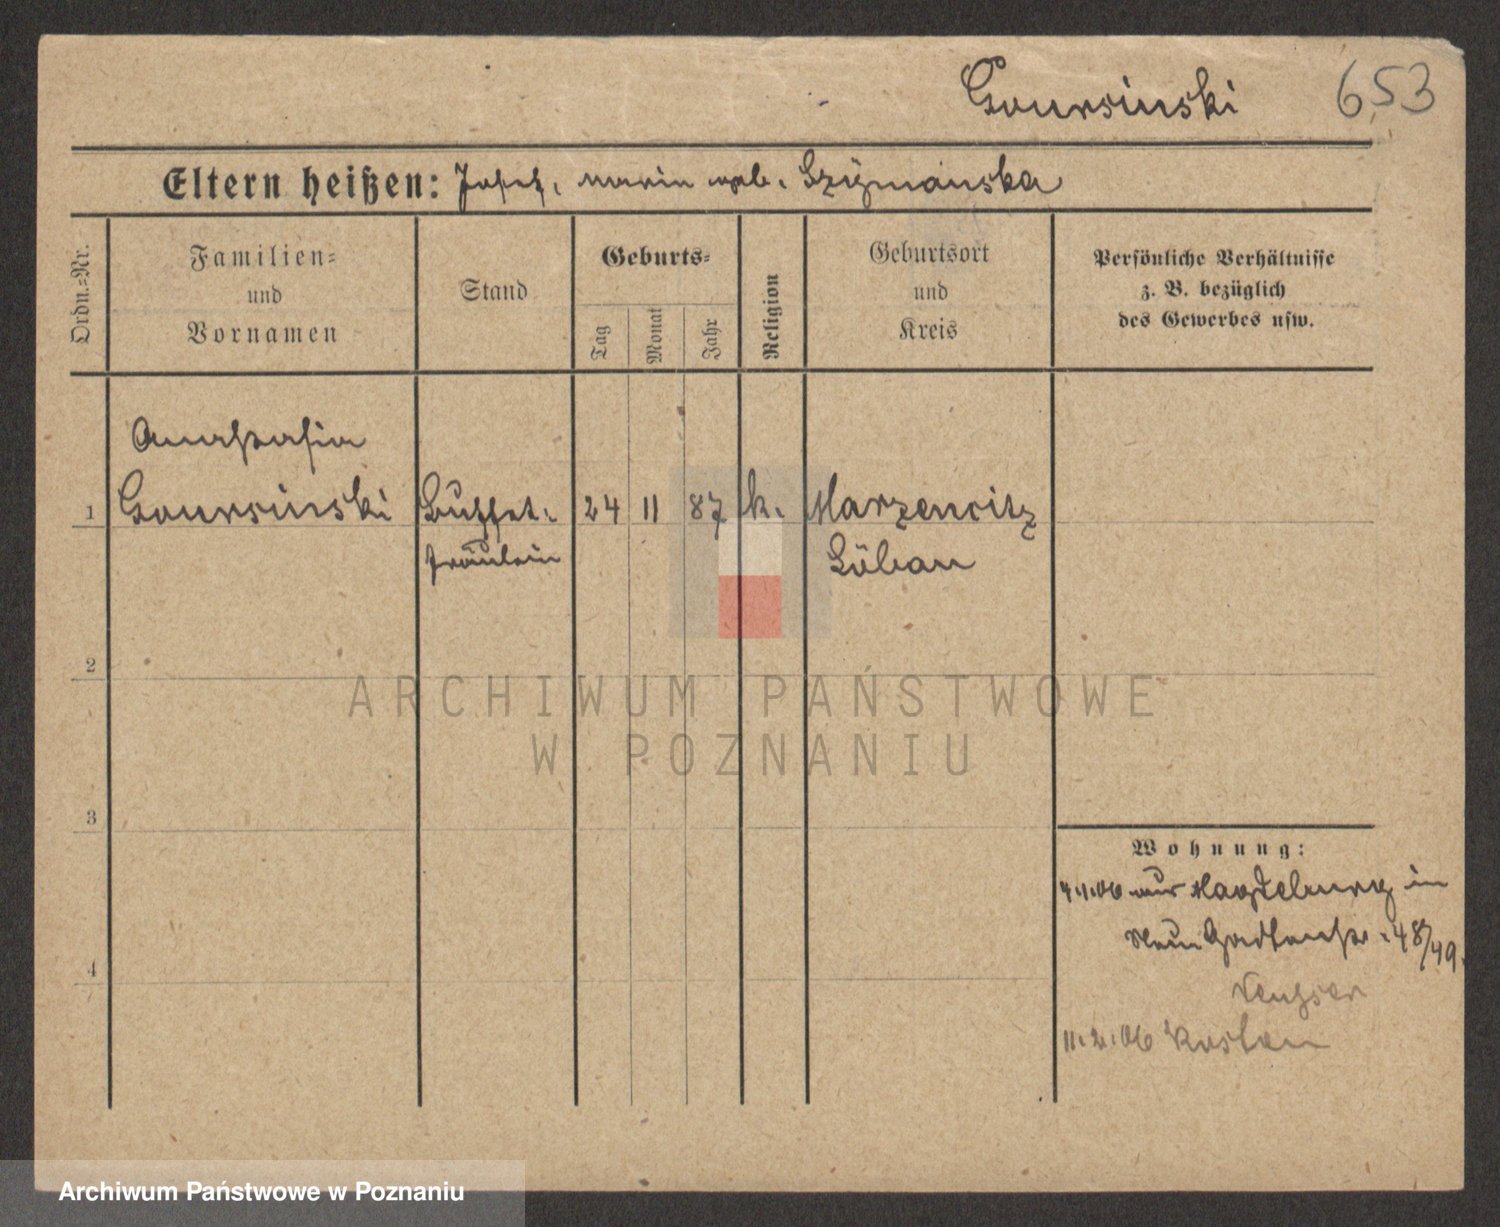 Goursinski 653
Eltern heißen: Josef, Maria geb. Szymanska
Ordn.-Nr.
Familien-
und
Vornamen
Stand
Geburts-
Tag
Monat
Jahr
Religion
Geburtsort
und
Kreis
Persönliche Verhältnisse
z. B. bezüglich
des Gewerbes usw.
Anastasia
1 Goursinski Buffet- 24 11 87 k. Marzencitz
fräulein Löbau
2
ARCHIWUM PAŃSTWOWE
W POZNANIU
3
Wohnung:
4.1.06 aus Magdeburg in
Neue Gartenstr. 48/49.
4
11.2.06 Kosten
Archiwum Państwowe w Poznaniu